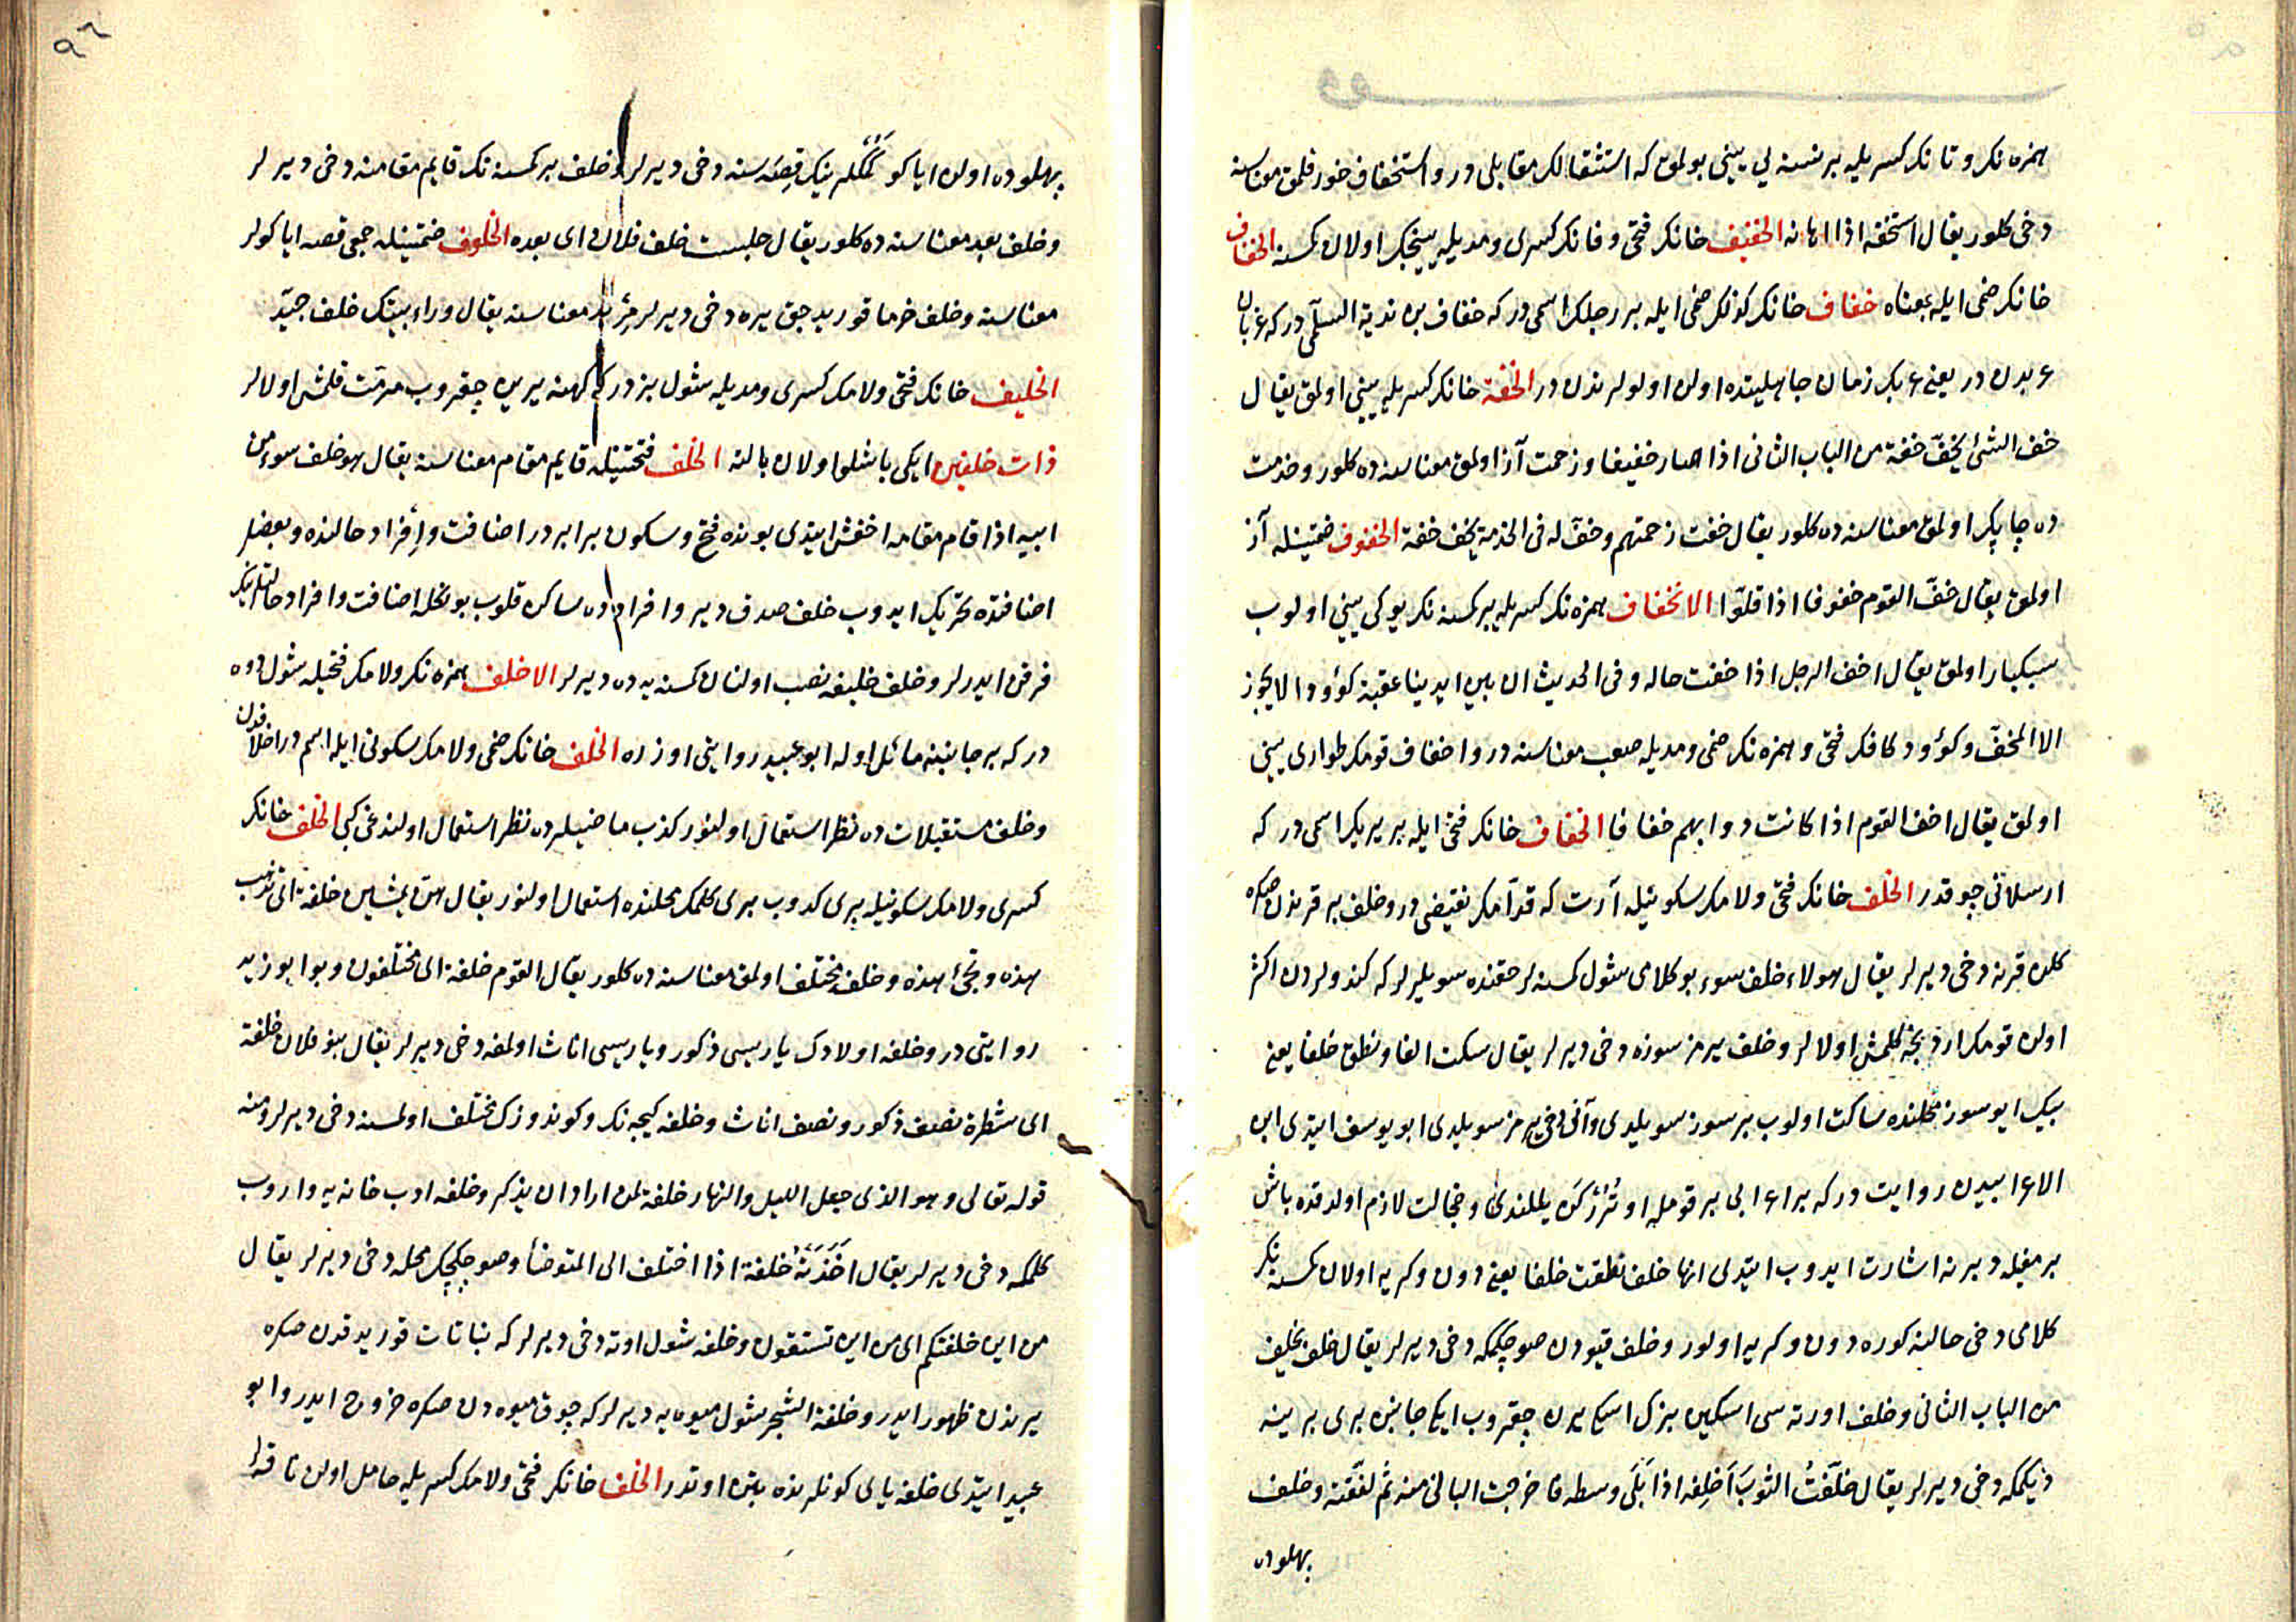 همزه نك و تا نك كسريله بر نسنه لي يينى بولمق كه استثقالك مقابلى در و استخفاف خور قلمق معناسنه
دخى كلور يقال استخفه اذا اهانه الخفيف خانك فتحى و فانك كسرى و مديله يينجك اولان كمسنه الخفاف
خانك ضمى ايله بمعناه خفاف خانك كونك ضمى ايله بر رجلك اسمى در كه خفاف بن ندبة السلمى در كه غربان
عربدن در يعنى عربك زمان جاهليتده اولن اولولرندن در الخفة خانك كسريله يينى اولمق يقال
خف الشئ يخف خفة من الباب الثانى اذا صار خفيفا و زحمت آز اولمق معناسنه ده كلور و خدمت
ده چاپك اولمق معناسنه ده كلور يقال خفت زحمتهم و خف له فى الخدمة يخف خفة الخفوف ضمتينله آز
اولمق يقال خف القوم خفوفا اذا قلوا الاخفاف همزه نك كسريله بر كمسنه نك يوكى يينى اولوب
سبكبار اولمق يقال اخف الرجل اذا خفت حاله و فى الحديث ان بين ايدينا عقبة كؤودا لا يجوز
الا المخف و كؤود كافك فتحى و همزه نك ضمى و مديله صعب معناسنه در و اخفاف قومك طوارى يينى
اولمق يقال اخف القوم اذا كانت دوابهم خفافا الخفاف خانك فتحى ايله بر يريك اسمى در كه
ارسلانى چوقدر الخلف خانك فتحى و لامك سكونيله آرت كه قدامك نقيضى در و خلف بر قرندن صكره
كلن قرنه دخى ديرلر يقال هولاء خلف سوء بو كلامى شول كمسنه لر حقنده سويلرلر كه كندولردن اكثر
اولن قومك اردنجه كلمش اولالر و خلف يرمز سوزه دخى ديرلر يقال سكت الفا و نطق خلفا يعنى
بيك ايو سوز محلنده ساكت اولوب بر سوز سويلدى و آنى دخى يرمز سويلدى ابو يوسف ايتدى ابن
الاعرابيدن روايت در كه بر اعرابى بر قومله اوتررکن يللندى و خجالت لازم اولدقده باش
بر مغيله دبرنه اشارت ايدوب ايتدى انها خلف نطقت خلفا يعنى دون و كريه اولان كمسنه نك
كلامى دخى حالنه كوره دون و كريه اولور و خلف قيودن صو چكمكه دخى ديرلر يقال خلف يخلف
من الباب الثانى و خلف اورته سى اسكين بزك اسكى يرن چقروب ايكى جانبن برى برينه
ديكمكه دخى ديرلر يقال خلفت الثوب اخلفه اذا بلى وسطه فاخرجت البالى منه ثم لفقته و خلف
پهلوده
٩٦
پهلوده اولن اياكو كمكلرينك قصه سنه دخى ديرلر و خلف بر كمسنه نك قايم مقامنه دخى ديرلر
و خلف بعد معناسنه ده كلور يقال جلست خلف فلان اى بعده الخلوف ضمتينله جمعى قصه اياكولر
معناسنه و خلف خرما قوريدجق يره دخى ديرلر مربد معناسنه يقال وراء بيتك خلف جيد
الخليف خانك فتحى و لامك كسرى و مديله شول بزدر كه كهنه يرين چقروب مرمت قلمش اولالر
ذات خلفين ايكى باشلو اولان بالته الخلف فتحتينله قايم مقام معناسنه يقال هو خلف سوء من
ابيه اذا قام مقامه اخفش ايتدى بونده فتح و سكون برابر در اضافت و افراد حالنده و بعضلر
اضافتده تحريك ايدوب خلف صدق دير و افرادده ساكن قلوب بونكله اضافت و افراد حالتلرينك
فرقن ايدرلر و خلف خليفه نصب اولنان كمسنه يه ده ديرلر الاخلف همزه نك و لامك فتحيله شول دوه
در كه بر جانبنه مائل اوله ابو عبيد روايتى اوزره الخلف خانك ضمى و لامك سكونى ايله اسم در اخلافدن
و خلف مستقبلات ده نظر استعمال اولنور كذب ماضيلرده نظر استعمال اولندغى كبى الخلف خانك
كسرى و لامك سكونيله برى كدوب برى كلمك محلنده استعمال اولنور يقال هن يمشين خلفة اى تذهب
هذه و تجئ هذه و خلف مختلف اولمق معناسنه ده كلور يقال القوم خلفة اى مختلفون و بو ابو زيد
روايتى در و خلفه اولادك ياريسى ذكور و ياريسى اناث اولمغه دخى ديرلر يقال بنو فلان خلفة
اى شطرة نصف ذكور و نصف اناث و خلفه كيجه نك و كوندوزك مختلف اولمسنه دخى ديرلر و منه
قوله تعالى و هو الذى جعل الليل و النهار خلفة لمن اراد ان يذكر و خلفه ادب خانه يه واروب
كلمكه دخى ديرلر يقال اخذته خلفة اذا اختلف الى المتوضأ و صو چكجك محله دخى ديرلر يقال
من اين خلفتكم اى من اين تستقون و خلفه شول اوته دخى ديرلر كه نباتات قوريدقدن صكره
يرندن ظهور ايدر و خلفة الشجر شول ميوه يه ديرلر كه چوق ميوه دن صكره خروج ايدر و ابو
عبيد ايتدى خلفه ياى كونلرنده بتن اوتدر الخلف خانك فتحى و لامك كسريله حامل اولن ناقه لر